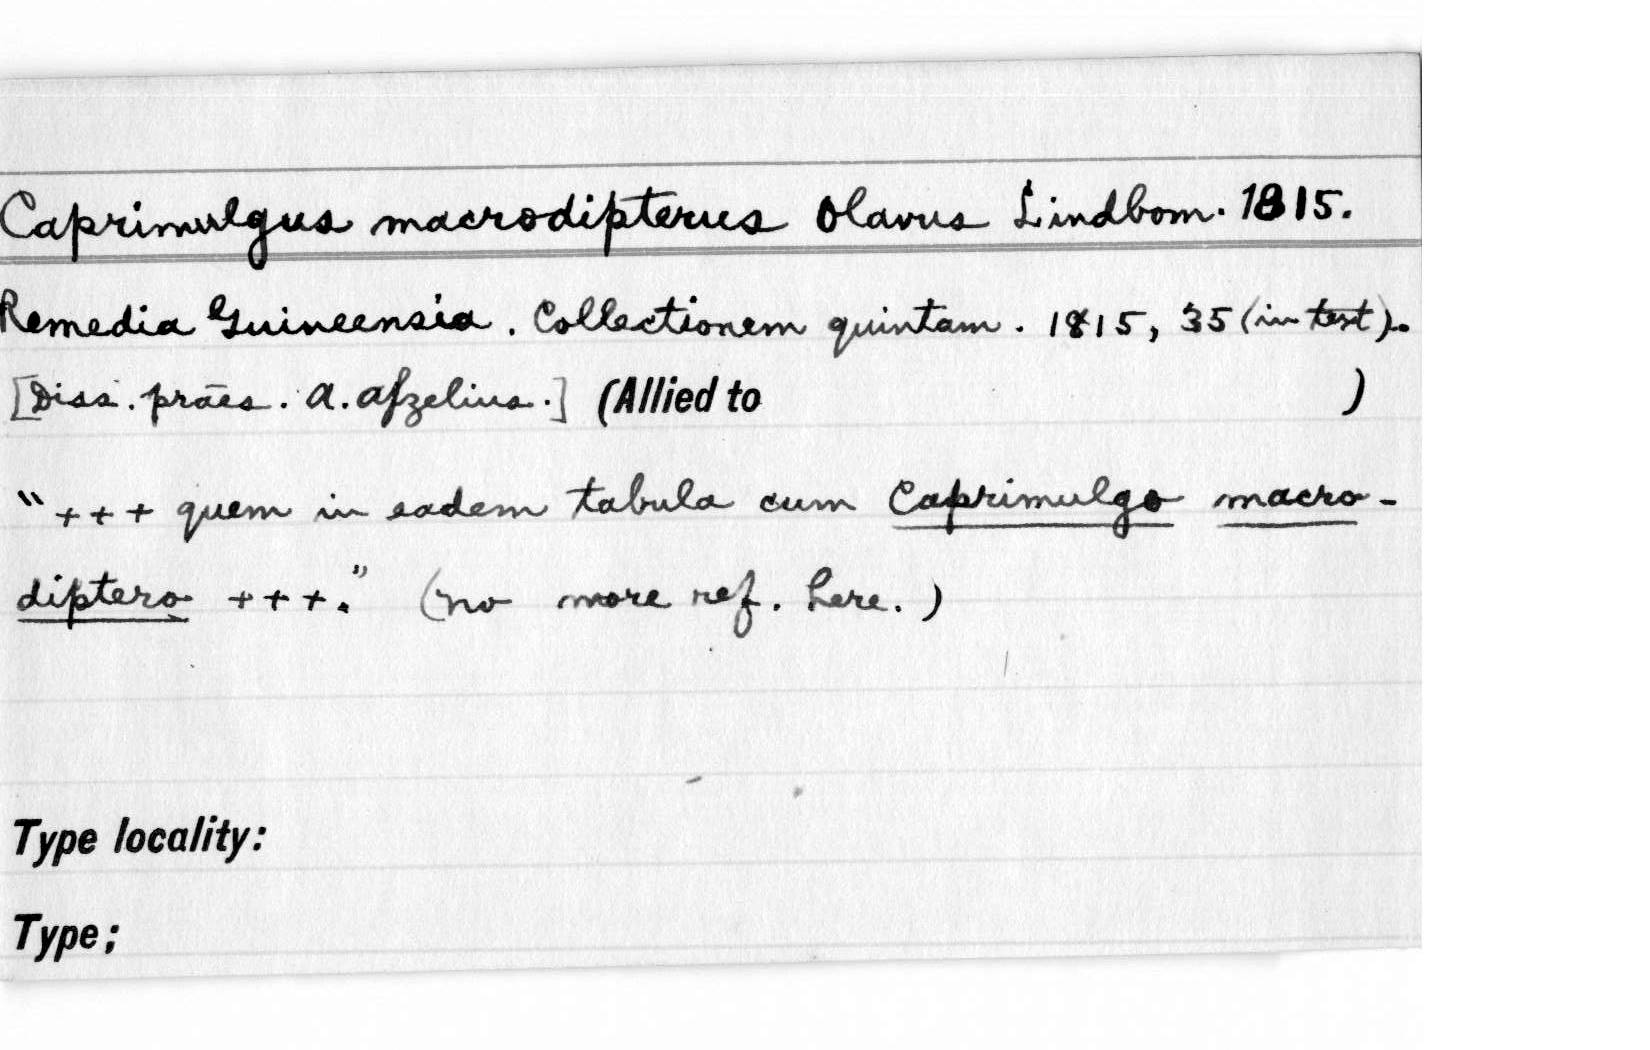 Caprimulgus macrodipterus Olavus Lindbom. 1815.
Remedia Guineensia. Collectionem quintam. 1815, 35 (in text).
[Diss. præs. A. Afzelius.] (Allied to )
"+++ quem in eadem tabula cum Caprimulgo macro-
diptero +++." (no more ref. here.)
Type locality:
Type;